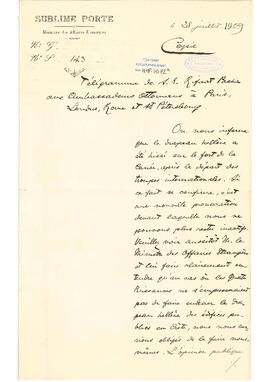 SUBLIME PORTE
Ministère des Affaires Etrangères
le 28 juillet 1909
Copie
No G.
No S. 143
Télégramme de S. E. Rifaat Pacha
aux Ambassadeurs Ottomans à Paris,
Londres, Rome et St Pétersbourg
On nous informe
que le drapeau hellène a
été hissé sur le fort de la
Canée, après le départ des
troupes internationales. Si
ce fait se confirme, c'est
une nouvelle provocation
devant laquelle nous ne
pouvons plus rester inactifs
Veuillez voir aussitôt M. le
Ministre des affaires étrangères
et lui faire clairement en-
tendre qu'au cas où les quatre
Puissances ne s'empresseraient
pas de faire enlever le dra-
peau hellène des édifices pu-
blics en Crète, nous nous ver-
rions obligés de la faire nous-
mêmes. L'opinion publique